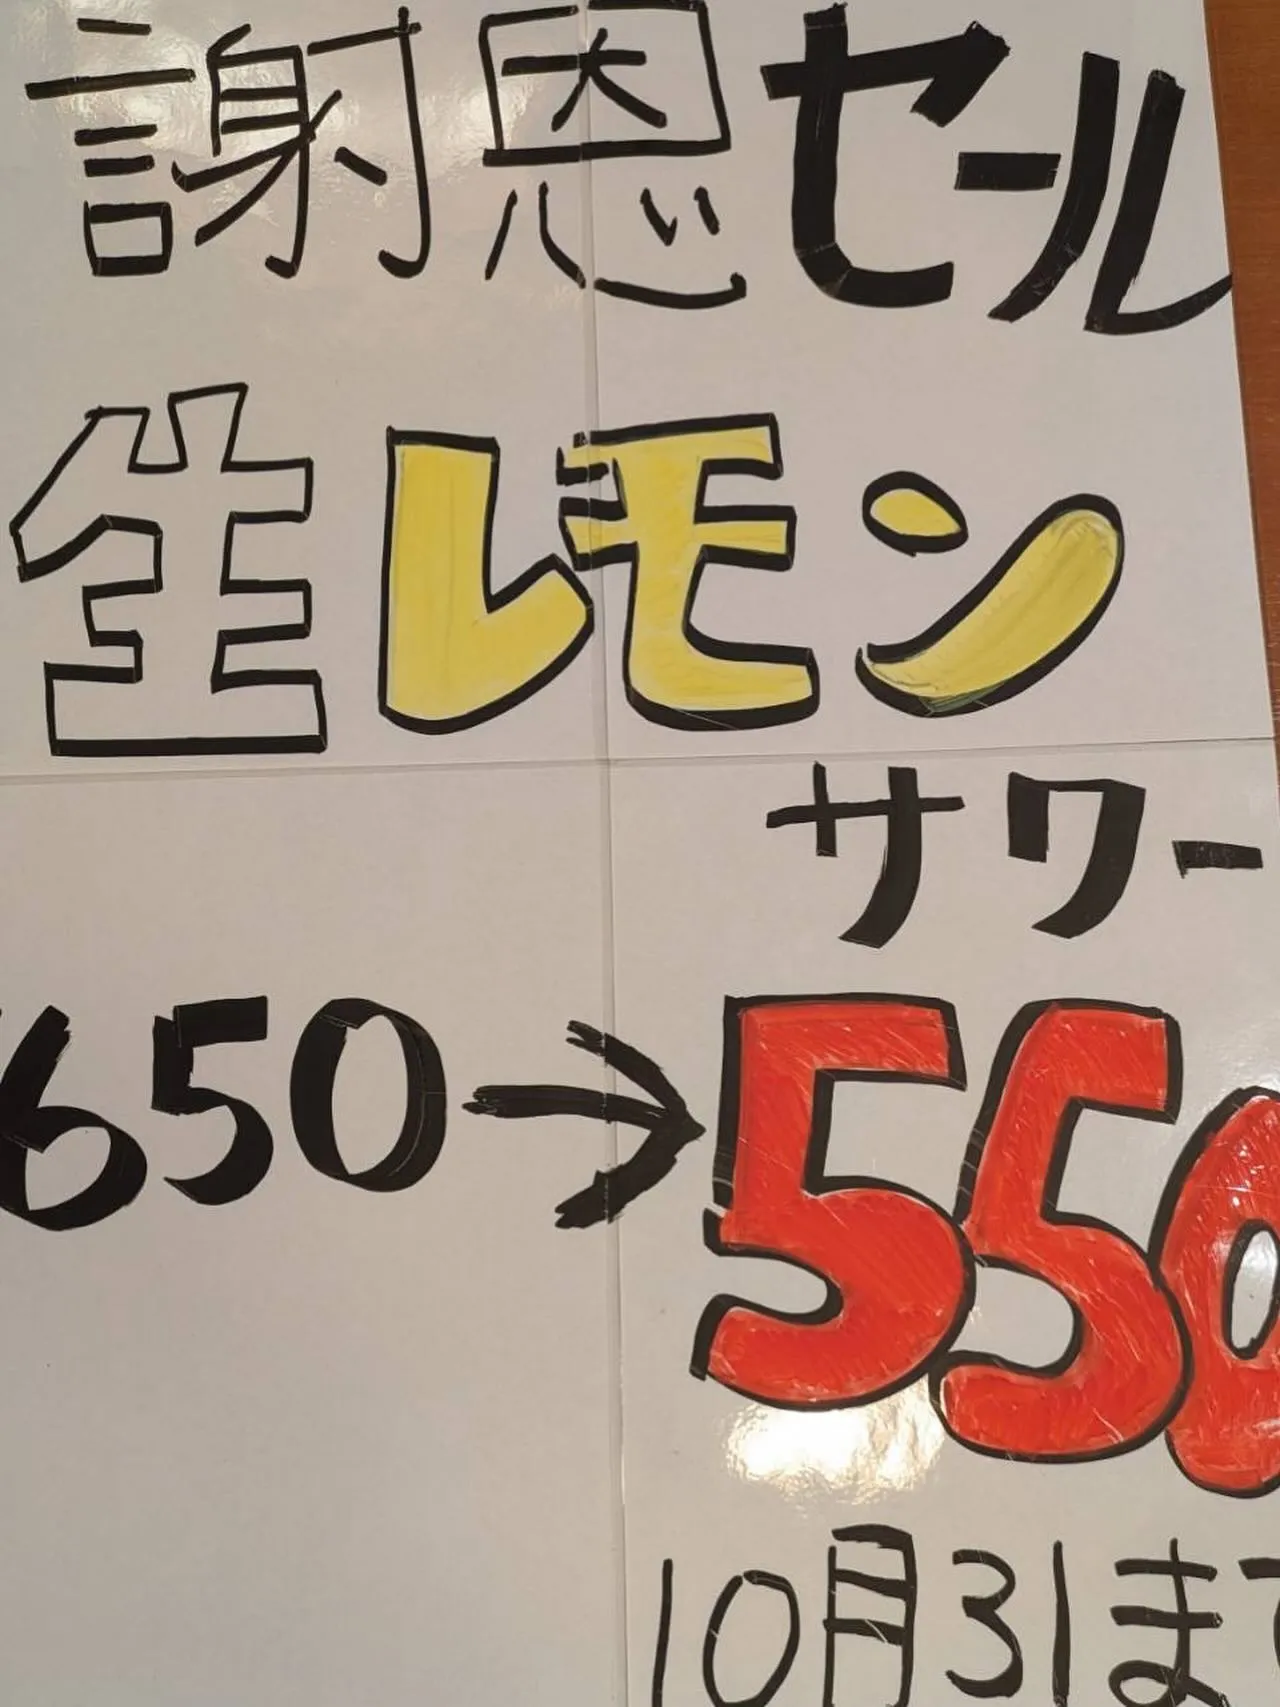 謝恩セール
生レモン
サワー
650→550
10月31まで